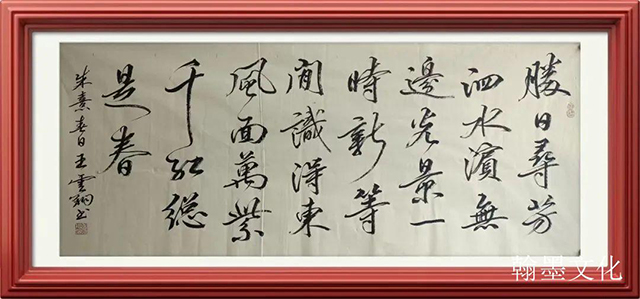 勝日尋芳
泗水濱無
邊光景一
時新等
閒識得東
風面萬紫
千紅總
是春
朱熹春日王雲翔书
翰墨文化